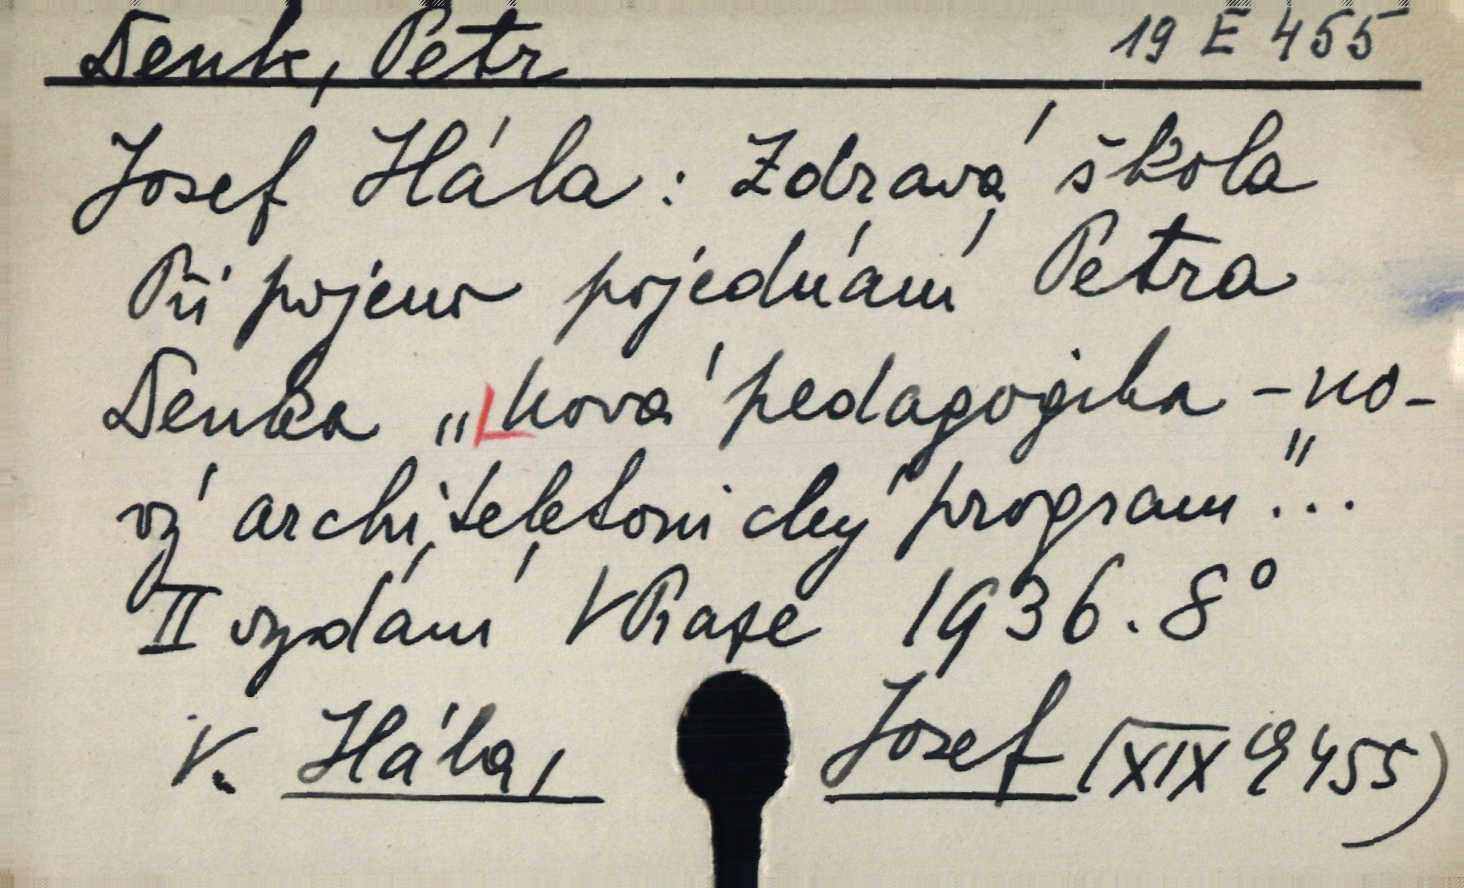 Denk, Petr 19 E 455
Josef Hála: Zdravá škola
Při pojeno pojednání Petra
Denka „Nová pedagogika - no-
vý architektonický program"...
II vydání V Praze 1936. 8°
V. Hála, Josef (XIX E 455)